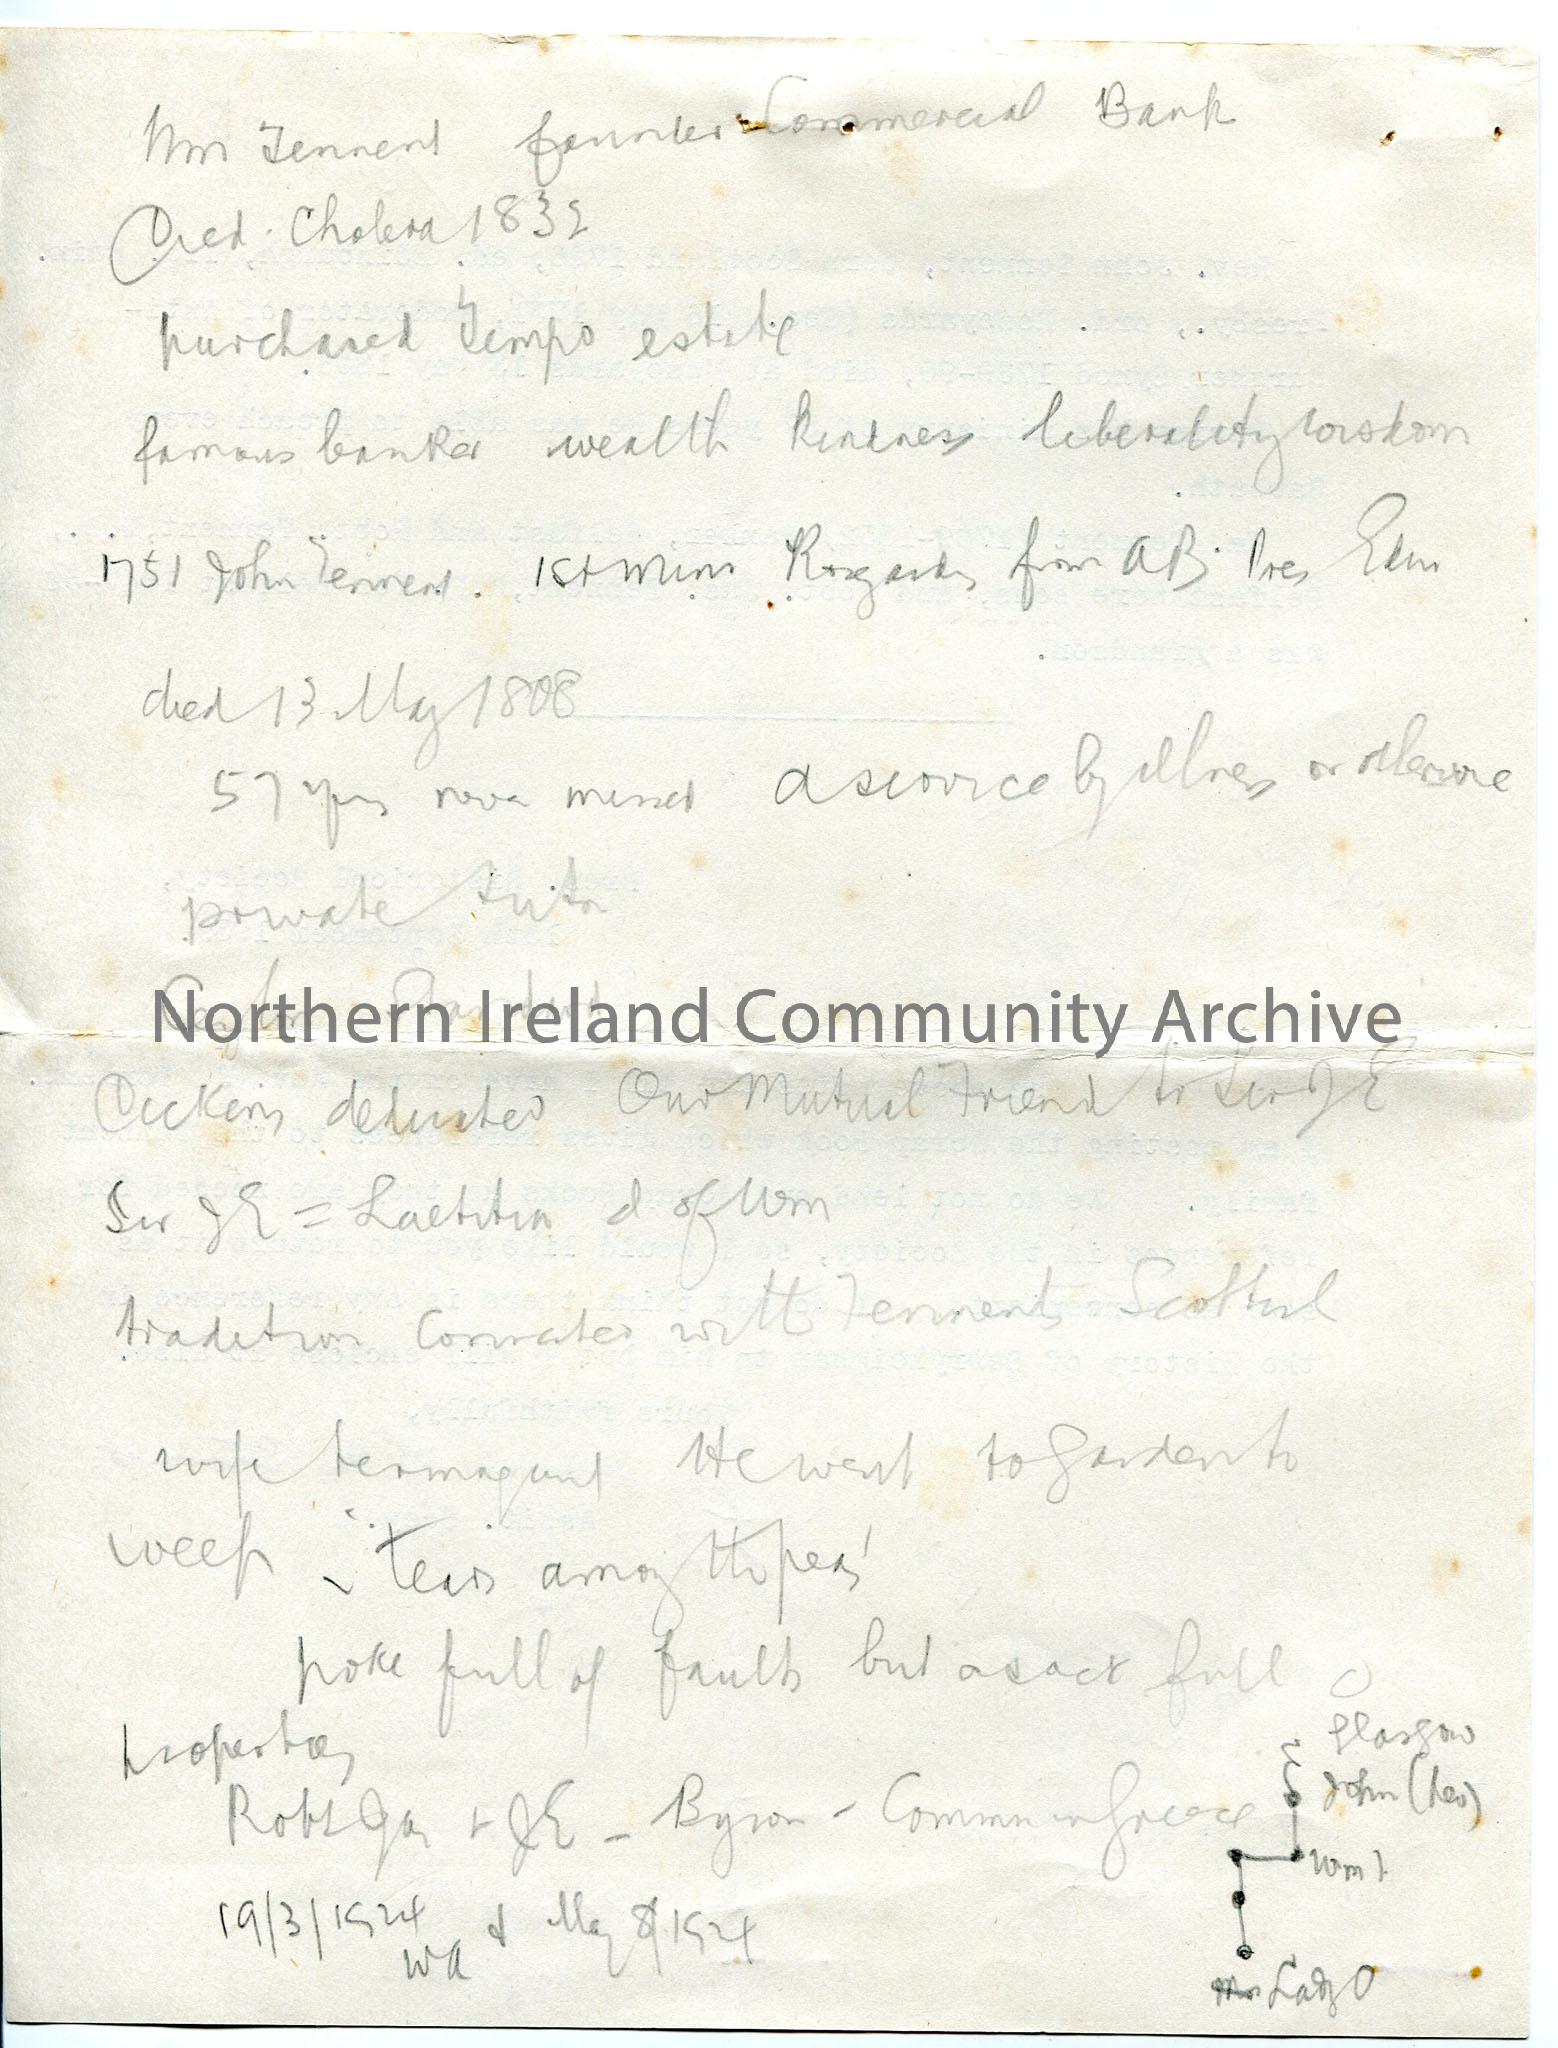 Wm Tennent founder Commercial Bank
Died. Cholera 1832
purchased Tempo estate
famous banker wealth kindness liberality wisdom
1751 John Tennent. 1st Min Roseyards from AB Pres Edin
died 13 May 1808
57 yrs never missed a service by illness or otherwise
private tutor
Northern Ireland Community Archive
Dickens dedicated Our Mutual Friend to Sir J E
Sir J E = Laetitia d of Wm
tradition Connected with Tennents Scottish
wife termagant He went to garden to
weep "tears among the peas'
poke full of faults but a sack full
properties
Robt Jas & J E - Byron - Commn in Greece
19/3/1924 & May 8/1924
WA
Glasgow
John (Rev)
Wm T
Lady D